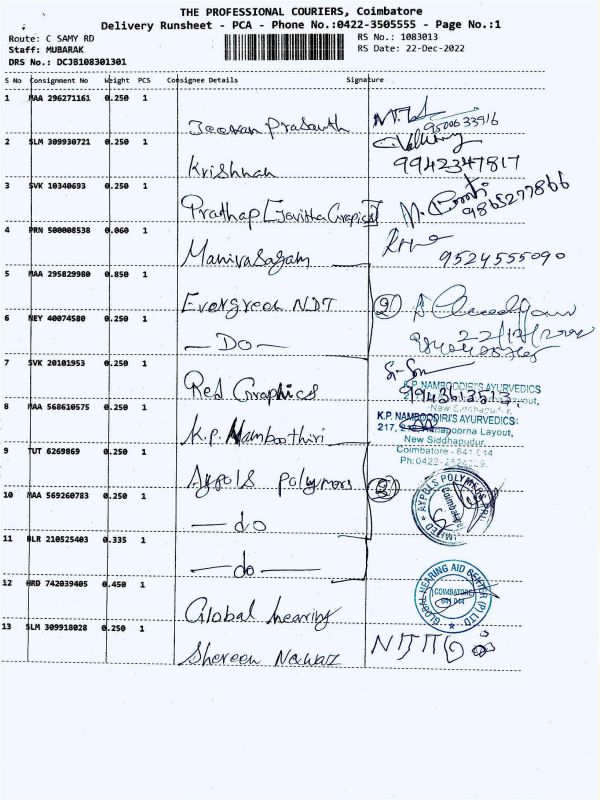 THE PROFESSIONAL COURIERS, Coimbatore
Delivery Runsheet - PCA - Phone No.:0422-3505555 - Page No.:1
Route: C SAMY RD
RS No.: 1083013
Staff: MUBARAK
RS Date: 22-Dec-2022
DRS No.: DCJB108301301
S No Consignment No Weight PCS Consignee Details Signature
1 MAA 296271161 0.250 1
Jeevan Prasauth
9500633916
2 SLM 309930721 0.250 1
Krishnan
9942347817
3 SVK 10340693 0.250 1
Prathap [Javitha Grapics]
9865277866
4 PRN 500008538 0.060 1
Manivasagam
9524555090
5 MAA 295829980 0.850 1
Evergreen NDT
2
6 NEY 40074580 0.250 1
— Do —
22/12/2022
7 SVK 20101953 0.250 1
Red Graphics
9943613513
K.P. NAMBOODIRI'S AYURVEDICS
8 MAA 568610575 0.250 1
K.P. Namboothiri
K.P. NAMBOODIRI'S AYURVEDICS
217, Annapoorna Layout,
New Siddhapudur,
Coimbatore - 641 044
9 TUT 6269869 0.250 1
Aypols polymers
2
AYPOLS POLYMERS
Coimbatore
10 MAA 569260783 0.250 1
— do
11 BLR 210525403 0.335 1
— do —
12 HRD 742039405 0.450 1
Global hearing
GLOBAL HEARING AID CENTER (P) LTD
COIMBATORE
641 044
13 SLM 309918028 0.250 1
Shereen Nawaz